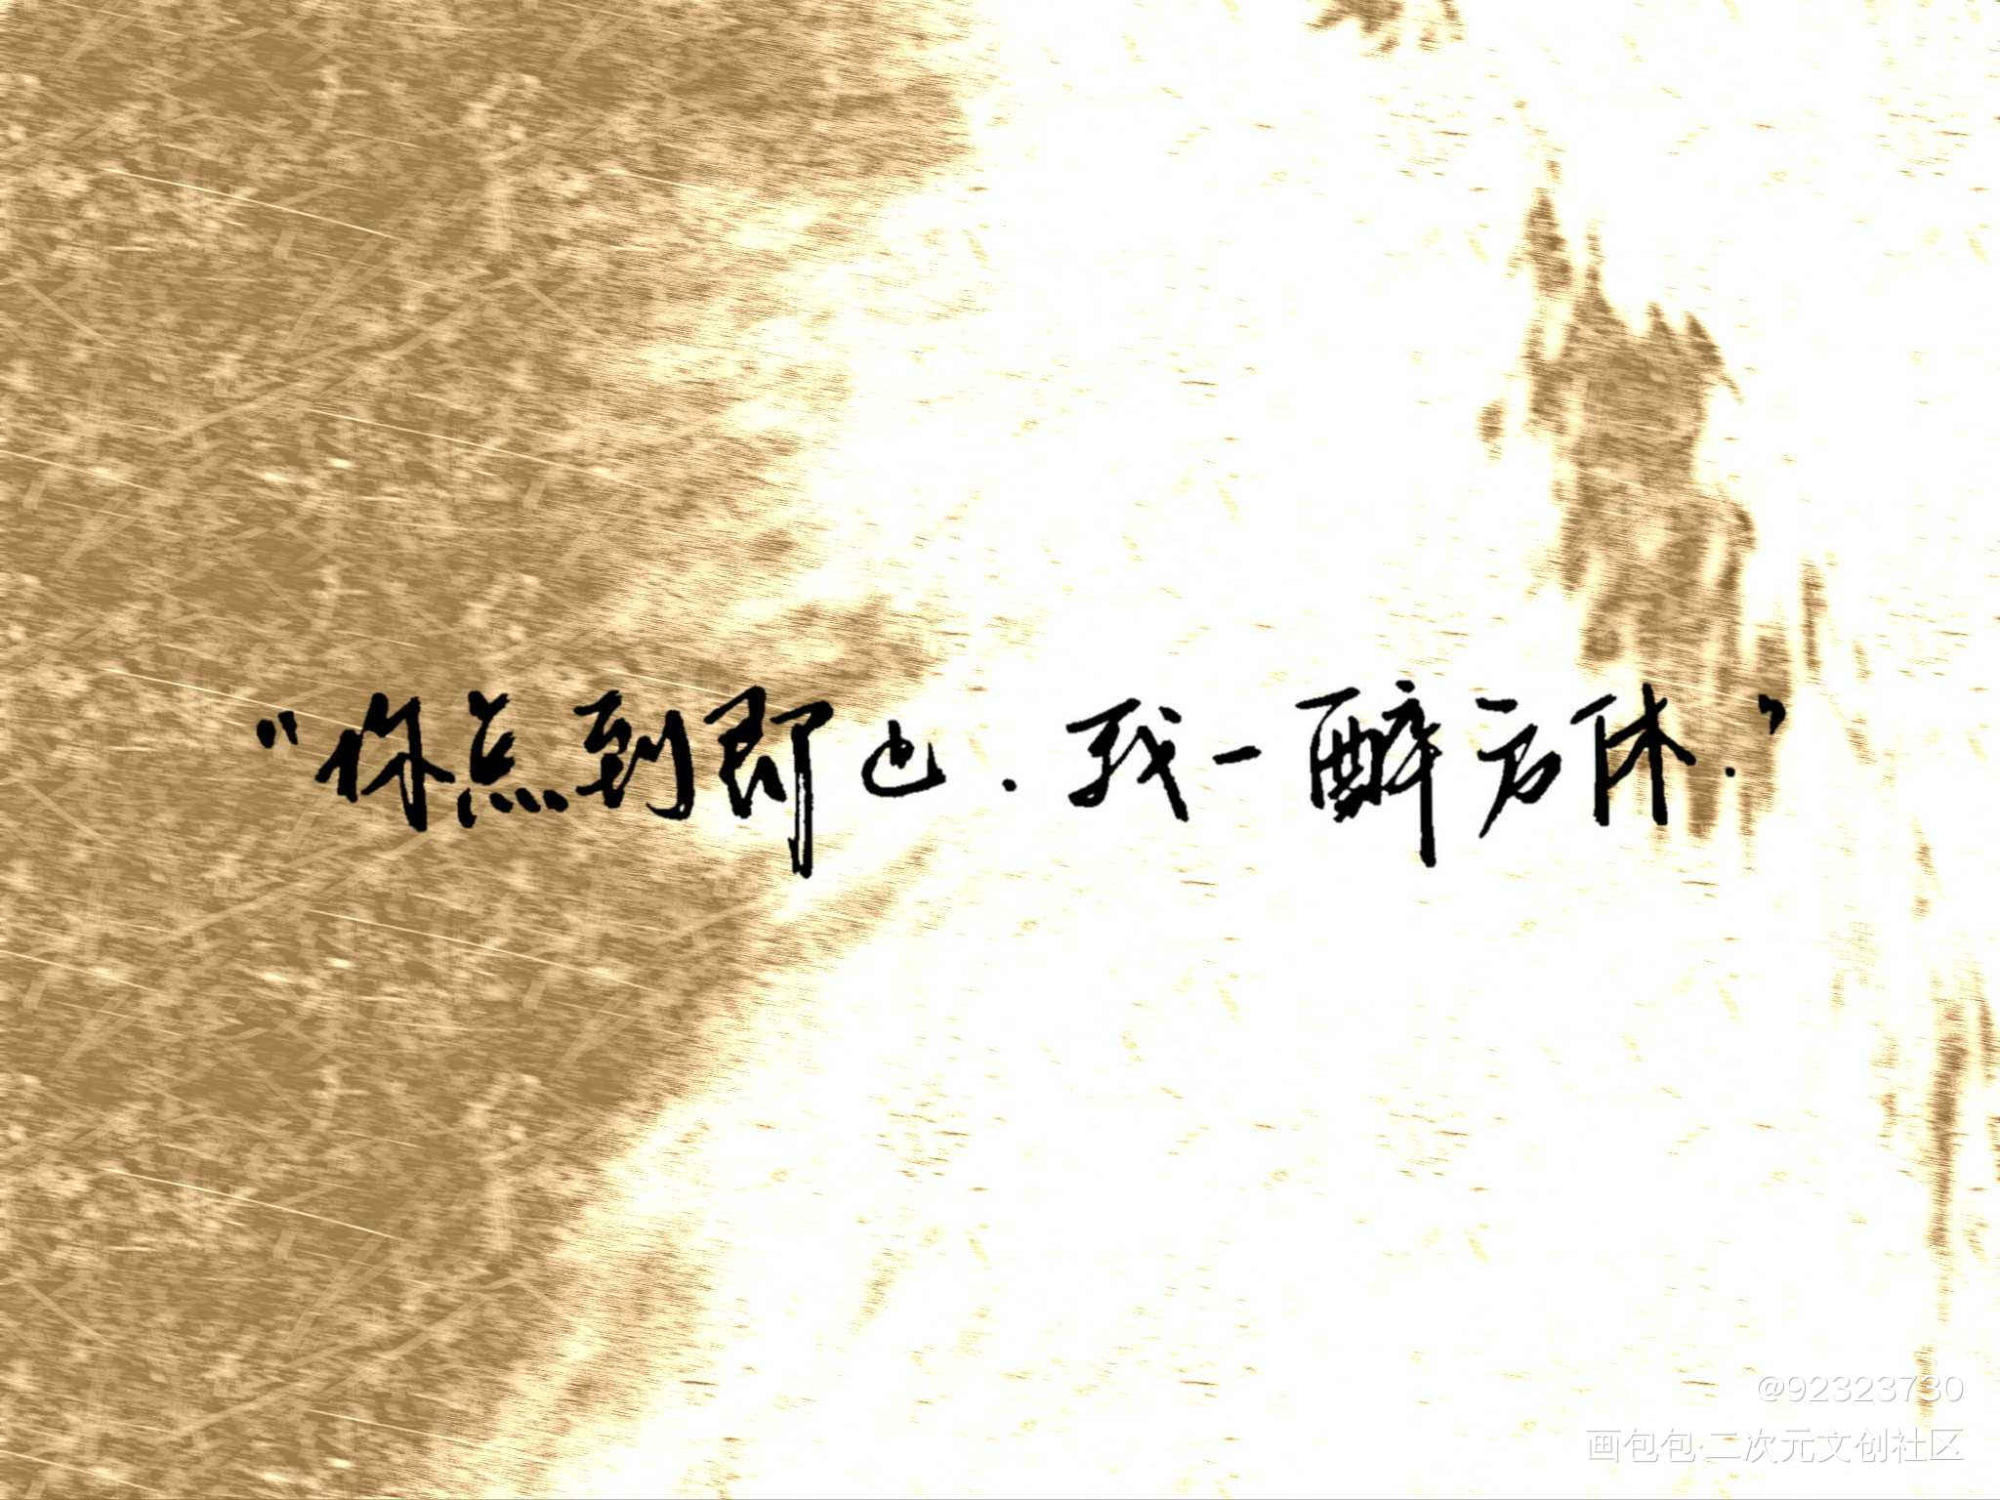 “你点到即止.我一醉方休.”
@92323730
画包包·二次元文创社区